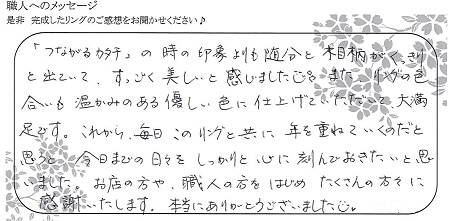 職人へのメッセージ
是非 完成したリングのご感想をお聞かせください♪
「つながるカタチ」の時の印象よりも随分と相柄がくっきり
と出ていて、すっごく美しいと感じました。また、リングの色
合いも温かみのある優しい色に仕上げていただいて、大満
足です。これから、毎日このリングと共に年を重ねていくのだと
思うと、今日までの日々をしっかりと心に刻んでおきたいと思
いました。お店の方や、職人の方をはじめたくさんの方々に
感謝いたします。本当にありがとうございました。